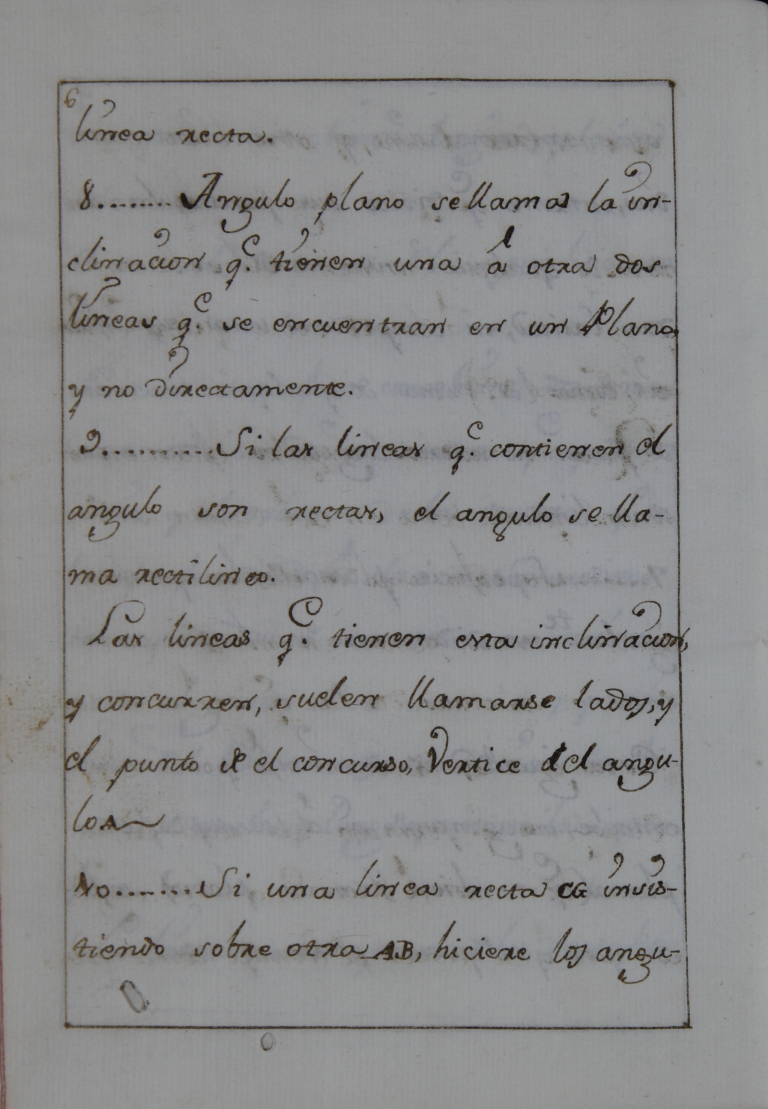 6
linea recta.
8........Angulo plano se llama la in-
clinacion q.e tienen una á otra dos
lineas q.e se encuentran en un Plano,
y no directamente.
9..........Si las lineas q.e contienen el
angulo son rectas, el angulo se lla-
ma rectilineo.
Las lineas q.e tienen esta inclinacion,
y concurren, suelen llamarse lados, y
el punto de el concurso, Vertice del angu-
lo A
10.......Si una linea recta CG insis-
tiendo sobre otra AB, hiciere los angu-